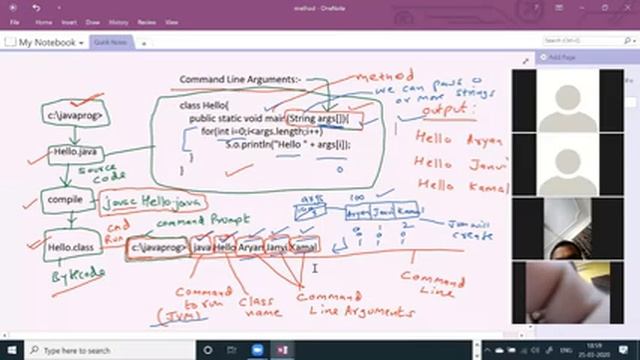 method - OneNote
File Home Insert Draw History Review View
My Notebook Quick Notes
Add Page
Command Line Arguments:-
method
we can pass 0
or more strings
c:\javaprog>
class Hello{
public static void main (String args[]){
for(int i=0;i<args.length;i++)
S.o.println("Hello " + args[i]);
}
}
0
output:
Hello Aryan
Hello Janvi
Hello Kamal
Hello.java
source
code
compile
javac Hello.java
args
100
100
Aryan Janvi Kamal
0 1 2
Jvm will
create
cmd
Run
command Prompt
Hello.class
c:\javaprog> java Hello Aryan Janvi Kamal
Bytecode
Command
to run
(JVM)
Class
name
Command
Line Arguments
Command
Line
Type here to search
ENG
18:59
25-03-2020